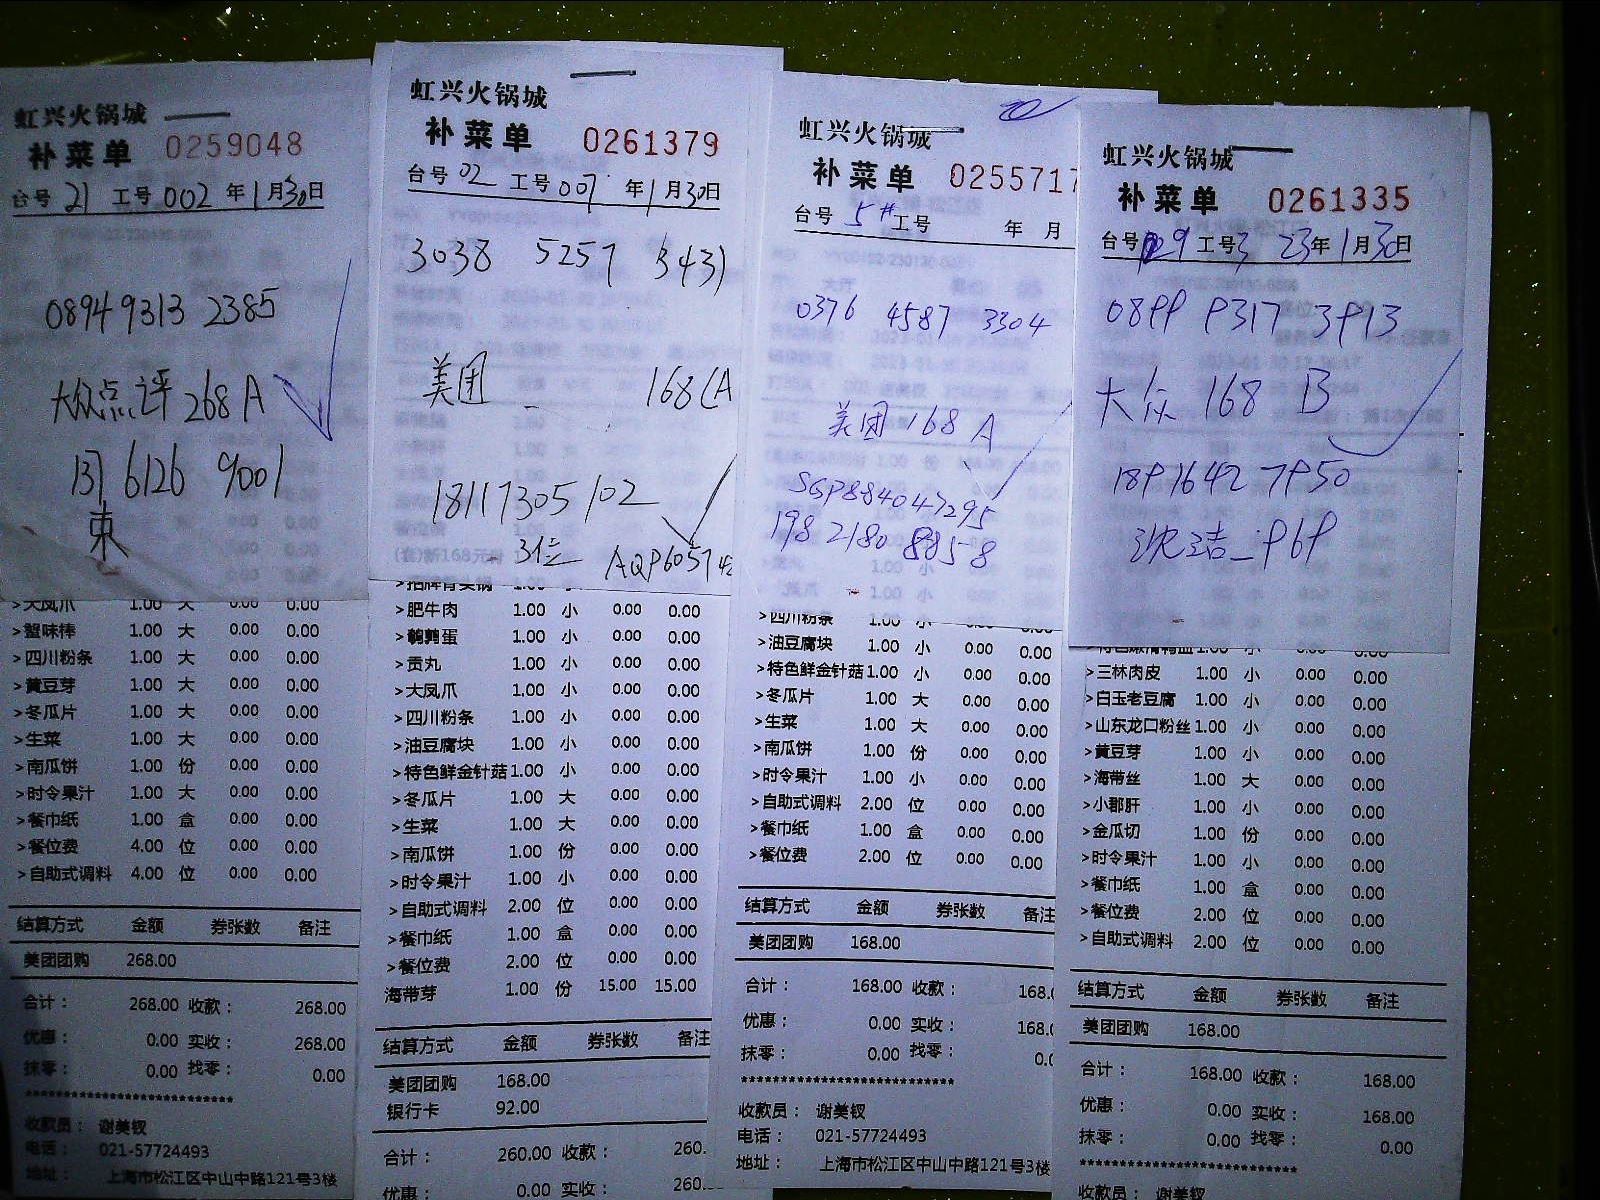 虹兴火锅城
补菜单 0259048
台号 21 工号 002 年 1 月 30 日
0894 9313 2385
大众点评 268 A
137 6126 9001
>大凤爪 1.00 大 0.00 0.00
>蟹味棒 1.00 大 0.00 0.00
>四川粉条 1.00 大 0.00 0.00
>黄豆芽 1.00 大 0.00 0.00
>冬瓜片 1.00 大 0.00 0.00
>生菜 1.00 大 0.00 0.00
>南瓜饼 1.00 份 0.00 0.00
>时令果汁 1.00 大 0.00 0.00
>餐巾纸 1.00 盒 0.00 0.00
>餐位费 4.00 位 0.00 0.00
>自助式调料 4.00 位 0.00 0.00
结算方式 金额 券张数 备注
美团团购 268.00
合计： 268.00 收款： 268.00
优惠： 0.00 实收： 268.00
抹零： 0.00 找零： 0.00
****************************
收款员： 谢美钗
电话： 021-57724493
地址： 上海市松江区中山中路121号3楼
虹兴火锅城
补菜单 0261379
台号 02 工号 007 年 1 月 30 日
3038 5257 3431
美团 168 (A
18117305102
3位 AQP60574
>招牌骨头锅 1.00
>肥牛肉 1.00 小 0.00 0.00
>鹌鹑蛋 1.00 小 0.00 0.00
>贡丸 1.00 小 0.00 0.00
>大凤爪 1.00 小 0.00 0.00
>四川粉条 1.00 小 0.00 0.00
>油豆腐块 1.00 小 0.00 0.00
>特色鲜金针菇 1.00 小 0.00 0.00
>冬瓜片 1.00 大 0.00 0.00
>生菜 1.00 大 0.00 0.00
>南瓜饼 1.00 份 0.00 0.00
>时令果汁 1.00 小 0.00 0.00
>自助式调料 2.00 位 0.00 0.00
>餐巾纸 1.00 盒 0.00 0.00
>餐位费 2.00 位 0.00 0.00
海带芽 1.00 份 15.00 15.00
结算方式 金额 券张数 备注
美团团购 168.00
银行卡 92.00
合计： 260.00 收款： 260.
优惠： 0.00 实收： 260.
虹兴火锅城
补菜单 0255717
台号 5# 工号 年 月
0376 4587 3304
美团 168 A
SGP884047295
198 2180 8858
>四川粉条 1.00 小 0.00
>油豆腐块 1.00 小 0.00 0.00
>特色鲜金针菇 1.00 小 0.00 0.00
>冬瓜片 1.00 大 0.00 0.00
>生菜 1.00 大 0.00 0.00
>南瓜饼 1.00 份 0.00 0.00
>时令果汁 1.00 小 0.00 0.00
>自助式调料 2.00 位 0.00 0.00
>餐巾纸 1.00 盒 0.00 0.00
>餐位费 2.00 位 0.00 0.00
结算方式 金额 券张数 备注
美团团购 168.00
合计： 168.00 收款： 168.
优惠： 0.00 实收： 168.
抹零： 0.00 找零： 0.
****************************
收款员： 谢美钗
电话： 021-57724493
地址： 上海市松江区中山中路121号3楼
虹兴火锅城
补菜单 0261335
台号 29 工号 3 23 年 1 月 30 日
0899 9317 3913
大众 168 B
189 1642 7950
沈洁_969
>三林肉皮 1.00 小 0.00 0.00
>白玉老豆腐 1.00 小 0.00 0.00
>山东龙口粉丝 1.00 小 0.00 0.00
>黄豆芽 1.00 小 0.00 0.00
>海带丝 1.00 大 0.00 0.00
>小郡肝 1.00 小 0.00 0.00
>金瓜切 1.00 份 0.00 0.00
>时令果汁 1.00 小 0.00 0.00
>餐巾纸 1.00 盒 0.00 0.00
>餐位费 2.00 位 0.00 0.00
>自助式调料 2.00 位 0.00 0.00
结算方式 金额 券张数 备注
美团团购 168.00
合计： 168.00 收款： 168.00
优惠： 0.00 实收： 168.00
抹零： 0.00 找零： 0.00
****************************
收款员： 谢美钗